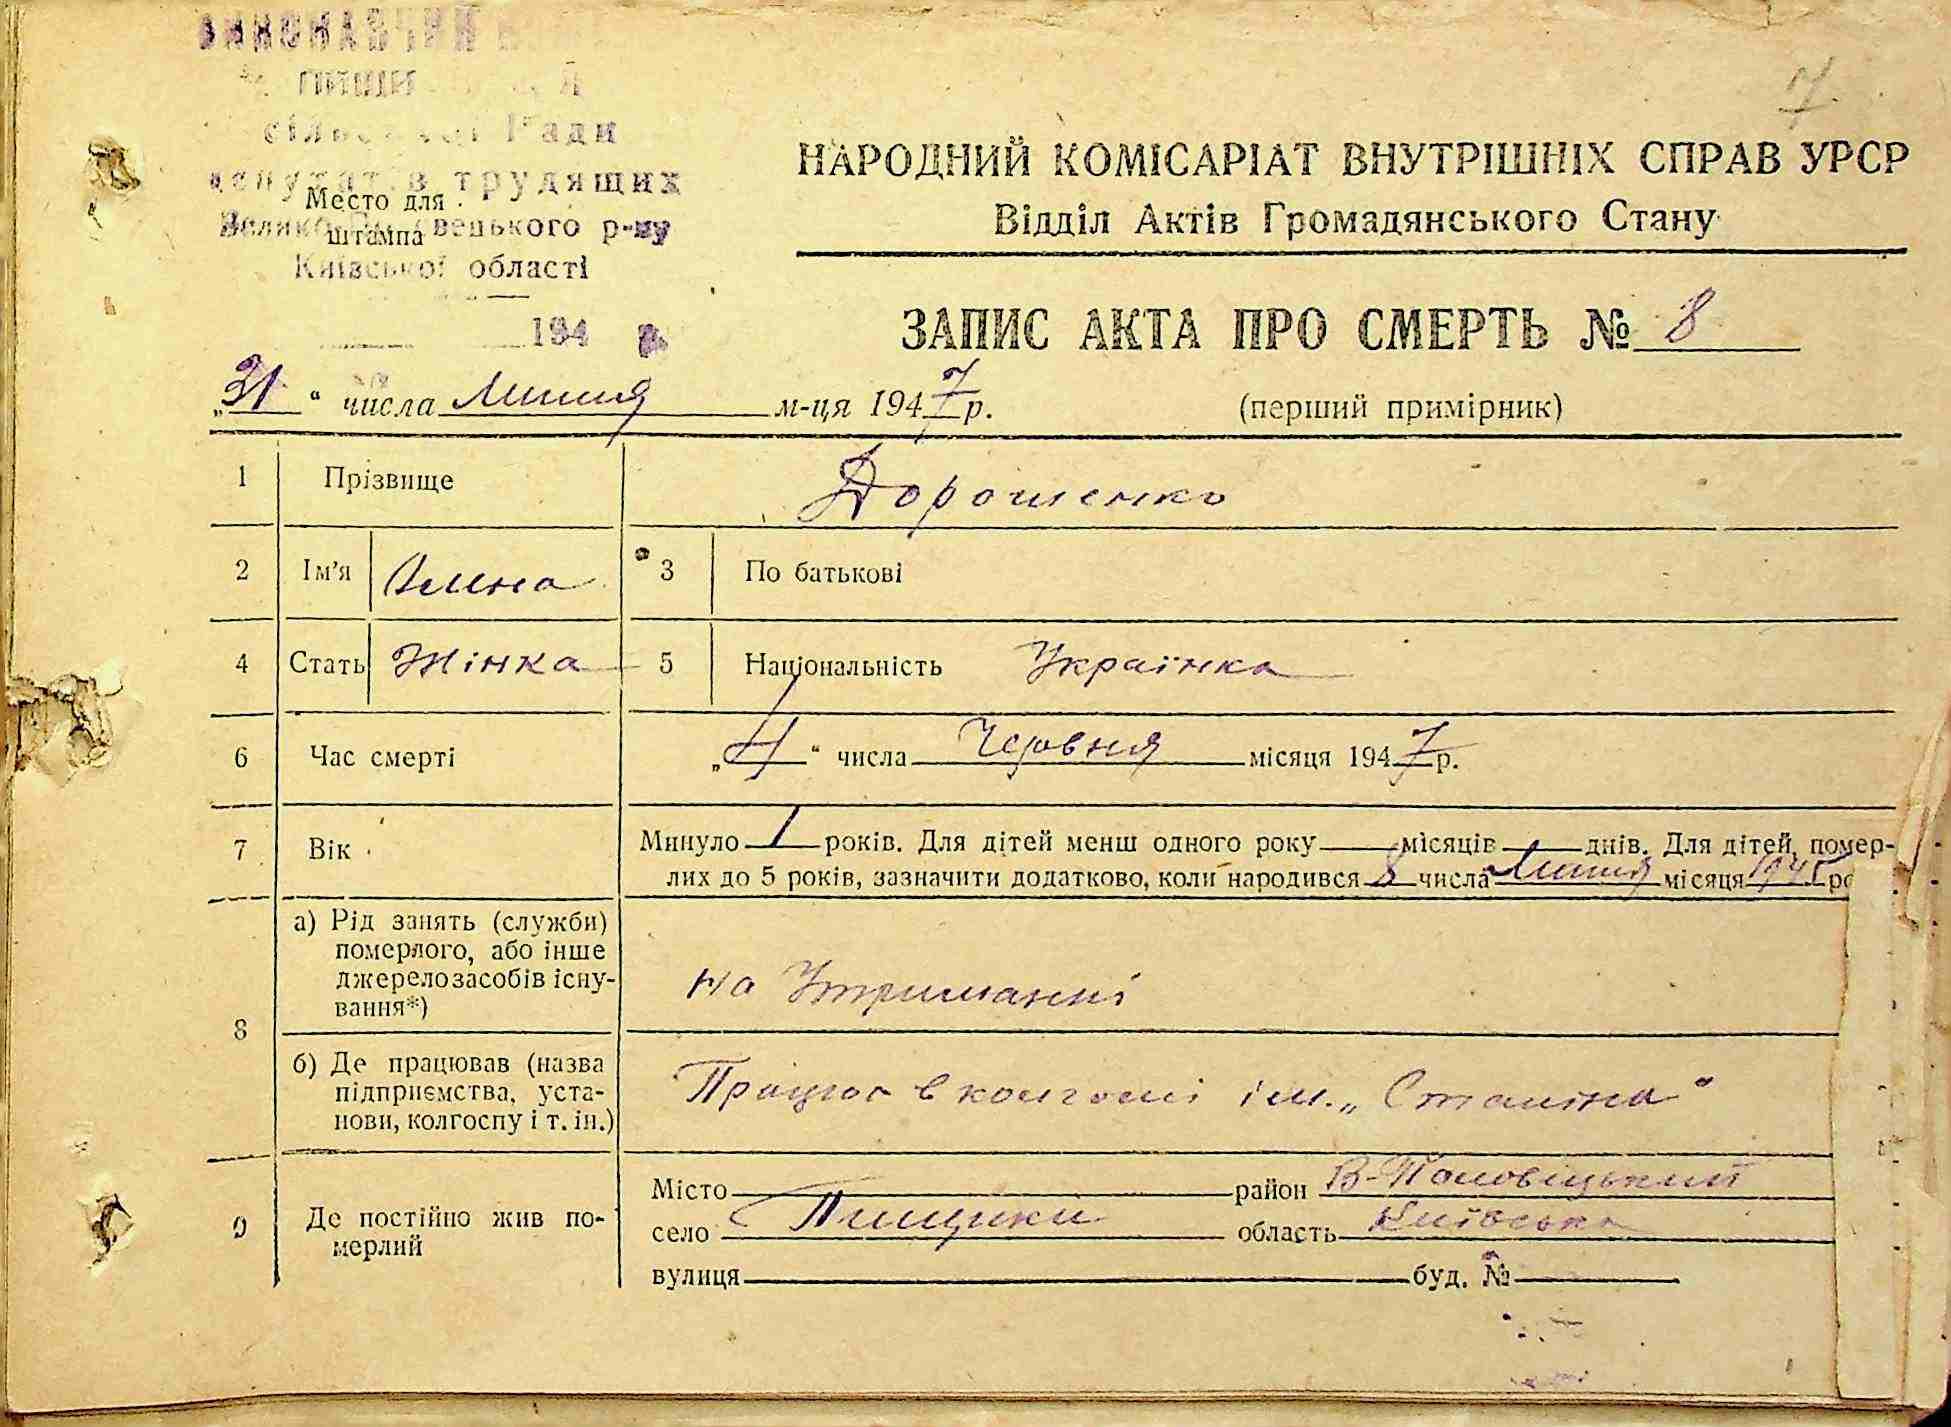 7
сільської Ради
депутатів трудящих
Место для
штампа
Велико- вецького р-ну
Київської області
194
НАРОДНИЙ КОМІСАРІАТ ВНУТРІШНІХ СПРАВ УРСР
Відділ Актів Громадянського Стану
ЗАПИС АКТА ПРО СМЕРТЬ № 8
„31“ числа Липня м-ця 1947 р.
(перший примірник)
1 Прізвище Дорошенко
2 Ім'я 3 По батькові
4 Стать Жінка 5 Національність Українка
6 Час смерті „4“ числа Червня місяця 1947 р.
7 Вік Минуло 1 років. Для дітей менш одного року місяців днів. Для дітей, помер-
лих до 5 років, зазначити додатково, коли народився 8 числа Липня місяця 1945 ро
8 а) Рід занять (служби)
померлого, або інше
джерело засобів існу-
вання*)
на Утриманні
б) Де працював (назва
підприємства, уста-
нови, колгоспу і т. ін.)
Працює в колгоспі ім. „Сталіна“
9 Де постійно жив по-
мерлий
Місто район В-Половецький
село Пищики область Київська
вулиця буд. №